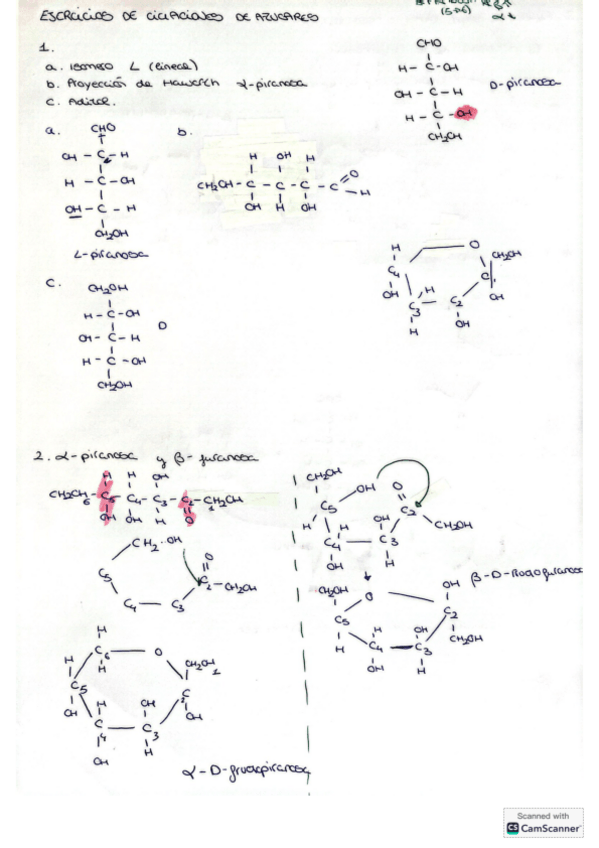 EJERCICIOS DE CICLACIONES DE AZUCARES
1.
a. Isomero L (lineal)
b. Proyección de Hawerth α-piranosa
c. Aditol.
CHO
H - C - OH
OH - C - H
H - C - OH
CH₂OH
D-piranosa
a.
CHO
OH - C - H
H - C - OH
OH - C - H
CH₂OH
L-piranosa
b.
H OH H
CH₂OH - C - C - C - C = O
OH H OH H
H O CH₂OH
C₄ C
OH H OH
C₃ C₂
H OH
c.
CH₂OH
H - C - OH
OH - C - H D
H - C - OH
CH₂OH
2. α-piranosa y β-furanosa
H H OH
CH₂OH - C₅ - C₄ - C₃ - C₂ - CH₂OH
6 1
OH OH H O
CH₂-OH
O
C₅ C₂ - CH₂OH
C₄ - C₃
H
C₆ O
H H CH₂OH 1
C₅ C
OH H OH OH
C C₃
4 H
OH
α-D-
CH₂OH
OH O
C₅ C₂
H H OH CH₂OH
C₄ - C₃
OH H
CH₂OH O OH
β-D-
C₅ C₂
H H OH CH₂OH
C₄ - C₃
OH H
Scanned with
CS CamScanner